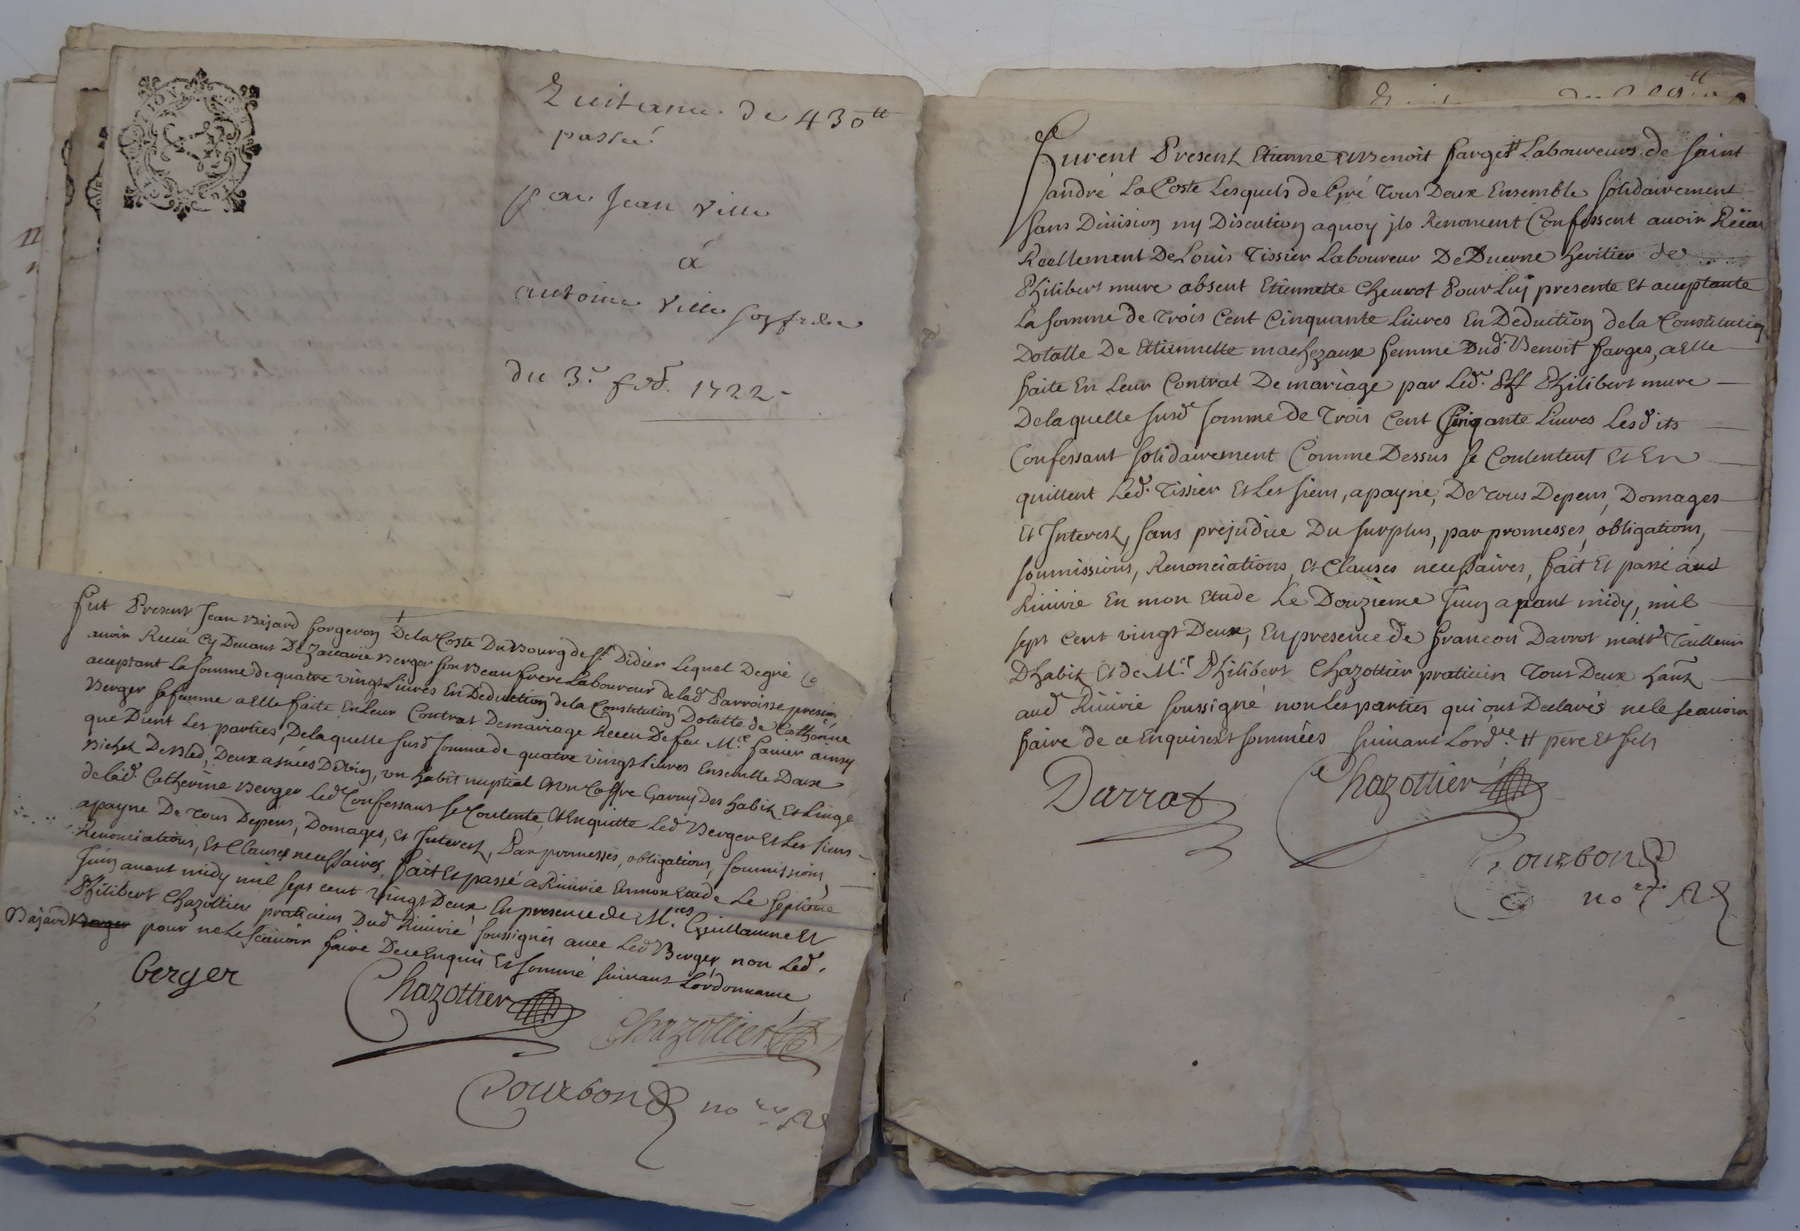 Quitance de 430tt
passée
par Jean Ville
á
antoine Ville son frere
du 3e feb. 1722 -
fut Present Jean Bajard forgeron De la Coste Du Bourg de St Didier Lequel De gré
avoir Receu Cy Devant De Zaccarie Berger son Beaufrere Laboureur de lad Parroisse present
acceptant La somme de quatre vingt Livres En Deduction de la Constitution Dotalle de Catherine
Berger sa femme a Elle faite En Leur Contrat De mariage Receu De feu Me ainsy
que Dient Les parties, De la quelle susd somme de quatre vingt Livres Ensemble Deux
Bichet De Bled, Deux asnées De Vin, un habit nuptial et un Coffre Garny Des habit Et Linge
de lad. Catherine Berger Led Confessant se Contente, Et En quitte Led Berger Et Les siens
apayne De tous Depens, Domages, Et Interest, Par promesses, obligations, soumissions,
Renonciations, Et Clauses necessaires, fait Et passé a Riuirie En mon Etude Le septieme
Juin auant midy mil sept cent vingt Deux En presence de Mes Guillaume Et
Philibert Chazottier praticiens Dud Riuirié soussignés auec Led Berger non Led.
Bajard Berger pour ne Le scauoir faire De ce Enquis Et sommé suiuant Lordonnance
berger
Chazottier
Chazottier
Bourbon nore R
furent Present Etienne et Benoit farges tt Laboureurs de saint
andré La Coste Lesquels de Gré tous Deux Ensemble solidairement
sans Diuision ny Discution a quoy jls Renoncent Confessent auoir Reçeu
Reellement De Louis Tissier Laboureur De Duerne heritier de
Philibert mure absent Etiennette Cheurot Pour Luy presente Et acceptante
La somme de trois Cent Cinquante Liures En Deduction de la Constitution
Dotalle De Etiennette machezaux femme Dud. Benoit farges, a Elle
faite En Leur Contrat De mariage par Led. Philibert mure
De la quelle susd somme de trois Cent Cinqante Liures Lesdits
Confessant solidairement Comme Dessus se Contentent Et En
quittent Led. Tissier Et Les siens, apayne, De tous Depens, Domages
Et Interest, sans prejudice Du surplus, par promesses, obligations,
soumissions, Renonciations, Et Clauses necessaires, fait Et passé aud
Riuirie En mon Etude Le Douzieme Juin auant midy, mil
sept cent vingt Deux, En presence de francois Darrot maitre tailleur
Dhabit Et de Me Philibert Chazottier praticien tous Deux hant
aud Riuirié soussigné non Les parties qui ont Declarés ne le scauoir
faire de ce Enquises Et sommées suiuant Lordce tt pere Et fils
Darrot
Chazottier
Bourbon
nore R